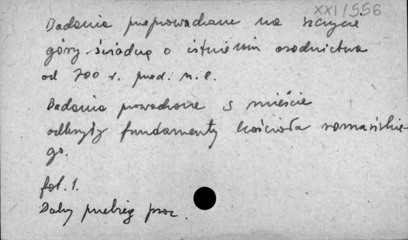 XXI/556
Badania przeprowadzone na szczycie
góry świadczą o istnieniu osadnictwa
od 700 r. przed n. e.
Badania prowadzone w mieście
odkryły fundamenty kościoła romańskie
go.
fot. 1.
Dalszy przebieg prac.